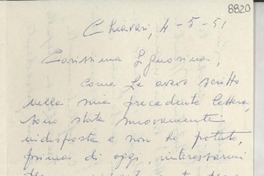 8820
Chiavari, 4-5-51
Carissima Signorina,
come Le avevo scritto
nella mia precedente lettera,
sono stata nuovamente
indisposta e non ho potuto,
prima di oggi, interessarmi